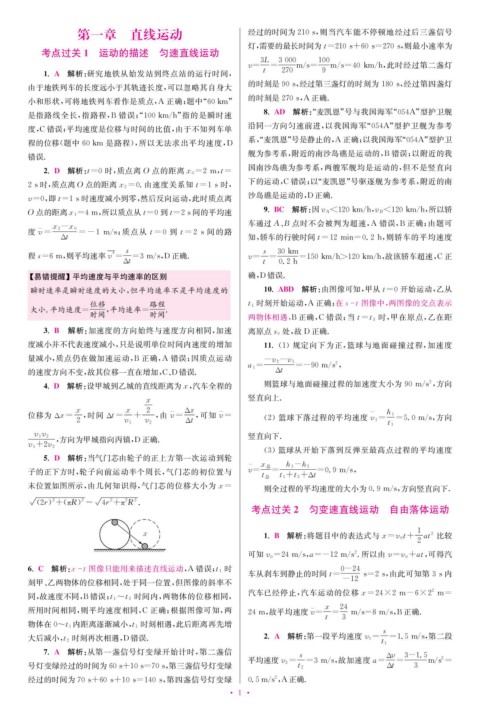 第一章　直线运动
考点过关 1　运动的描述　匀速直线运动
1. A　解析:研究地铁从始发站到终点站的运行时间,
由于地铁列车的长度远小于其轨道长度,可以忽略其自身大
小和形状,可将地铁列车看作是质点,A 正确;题中“60 km”
是指路线全长,指路程,B 错误;“100 km/h”指的是瞬时速
度,C 错误;平均速度是位移与时间的比值,由于不知列车单
程的位移(题中 60 km 是路程),所以无法求出平均速度,D
错误.
2. D　解析:t=0 时,质点离 O 点的距离 x₀=2 m,t=
2 s时,质点离 O 点的距离 x₂=0. 由速度关系知 t=1 s 时,
v=0,即 t=1 s时速度减小到零,然后反向运动,此时质点离
O 点的距离 x₁=4 m,所以质点从 t=0 到 t=2 s间的平均速
度 v̄=(x₂-x₀)/Δt=-1 m/s;质点从 t=0 到 t=2 s 间的路
程 s=6 m,则平均速率 v̄′=s/Δt=3 m/s,D 正确.
【易错提醒】平均速度与平均速率的区别
瞬时速率是瞬时速度的大小,但平均速率不是平均速度的
大小.平均速度=位移/时间,平均速率=路程/时间.
3. B　解析:加速度的方向始终与速度方向相同,加速
度减小并不代表速度减小,只是说明单位时间内速度的增加
量减小,质点仍在做加速运动,B 正确,A 错误;因质点运动
的速度方向不变,故其位移一直在增加,C、D错误.
4. D　解析:设甲城到乙城的直线距离为 x,汽车全程的
位移为 Δx=x/2,时间 Δt=(x/2)/v₁+x/v₂,由 v̄=Δx/Δt,可知 v̄=
v₁v₂/(v₁+2v₂),方向为甲城指向丙镇,D 正确.
5. D　解析:当气门芯由轮子的正上方第一次运动到轮
子的正下方时,轮子向前运动半个周长,气门芯的初位置与
末位置如图所示,由几何知识得,气门芯的位移大小为 x=
√((2r)²+(πR)²)=√(4r²+π²R²).
x
6. C　解析:x-t 图像只能用来描述直线运动,A 错误;t₁ 时
刻甲、乙两物体的位移相同,处于同一位置,但图像的斜率不
同,故速度不同,B 错误;t₁~t₂ 时间内,两物体的位移相同,
所用时间相同,则平均速度相同,C 正确;根据图像可知,两
物体在 0~t₁内距离逐渐减小,t₁ 时刻相遇,此后距离再先增
大后减小,t₂ 时刻再次相遇,D错误.
7. A　解析:从第一盏信号灯变绿开始计时,第二盏信
号灯变绿经过的时间为 60 s+10 s=70 s,第三盏信号灯变绿
经过的时间为 70 s+60 s+10 s=140 s,第四盏信号灯变绿
经过的时间为 210 s,则当汽车能不停顿地经过后三盏信号
灯,需要的最长时间为 t=210 s+60 s=270 s,则最小速率为
v=3L/t=3 000/270 m/s=100/9 m/s=40 km/h,此时经过第二盏灯
的时刻是 90 s,经过第三盏灯的时刻为 180 s,经过第四盏灯
的时刻是 270 s,A 正确.
8. AD　解析:“麦凯恩”号与我国海军“054A”型护卫舰
沿同一方向匀速前进,以我国海军“054A”型护卫舰为参考
系,“麦凯恩”号是静止的,A 正确;以我国海军“054A”型护卫
舰为参考系,附近的南沙岛礁是运动的,B 错误;以附近的我
国南沙岛礁为参考系,两艘军舰均是运动的,但不是竖直向
下的运动,C 错误;以“麦凯恩”号驱逐舰为参考系,附近的南
沙岛礁是运动的,D 正确.
9. BC　解析:因 vA<120 km/h,vB<120 km/h,所以轿
车通过 A、B 点时不会被判为超速,A 错误,B 正确;由题可
知,轿车的行驶时间 t=12 min=0.2 h,则轿车的平均速度
v̄=s/t=30 km/0.2 h=150 km/h>120 km/h,故该轿车超速,C 正
确,D错误.
10. ABD　解析:由图像可知,甲从 t=0 开始运动,乙从
t₁ 时刻开始运动,A 正确;在 s-t 图像中,两图像的交点表示
两物体相遇,B 正确,C 错误;当 t=t₃ 时,甲在原点,乙在距
离原点 s₀ 处,故 D 正确.
11. (1) 规定向下为正,篮球与地面碰撞过程,加速度
a₂=(-v₂-v₁)/Δt=-90 m/s²,
则篮球与地面碰撞过程的加速度大小为 90 m/s²,方向
竖直向上.
(2) 篮球下落过程的平均速度 v̄₁=h₁/t₁=5.0 m/s,方向
竖直向下.
(3) 篮球从开始下落到反弹至最高点过程的平均速度
v̄=x总/t总=(h₁-h₂)/(t₁+t₂+Δt)=0.9 m/s,
则全过程的平均速度的大小为 0.9 m/s,方向竖直向下.
考点过关 2　匀变速直线运动　自由落体运动
1. B　解析:将题目中的表达式与 x=v₀t+1/2at² 比较
可知 v₀=24 m/s,a=-12 m/s². 所以由 v=v₀+at,可得汽
车从刹车到静止的时间 t=(0-24)/(-12) s=2 s,由此可知第 3 s内
汽车已经停止,汽车运动的位移 x=24×2 m-6×2² m=
24 m,故平均速度 v̄=x/t=24/3 m/s=8 m/s,B正确.
2. A　解析:第一段平均速度 v₁=s/t₁=1.5 m/s,第二段
平均速度 v₂=s/t₂=3 m/s,故加速度 a=Δv/Δt=(3-1.5)/3 m/s²=
0.5 m/s²,A正确.
· 1 ·